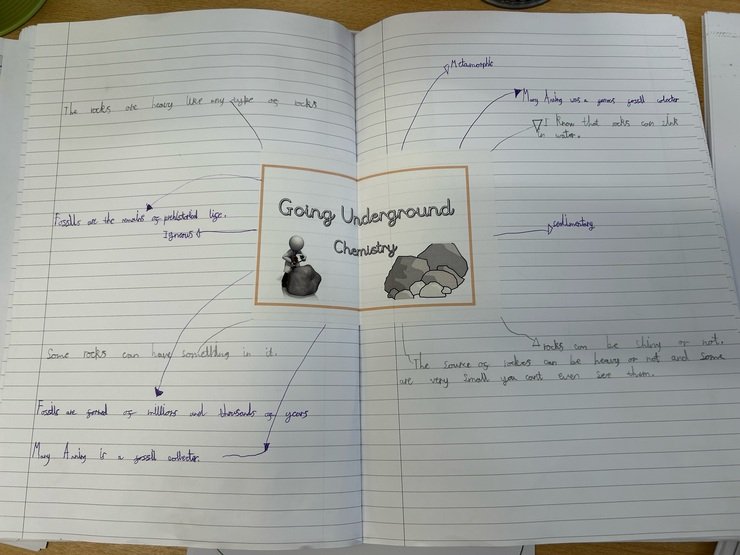 The rocks are heavy like any type of rocks
Fossils are the remains of prehistored life.
Igneous
Going Underground
Chemistry
Some rocks can have something in it.
Fossils are formd of millions and thousands of years
Mary Aning is a fossil collector.
Metamorphic
Mary Aning was a famos fossil colector
I know that rocks can sink
in water.
sedimentary
rocks can be shiny or not.
The source of rockes can be heavy or not and some
are very small you cant even see them.